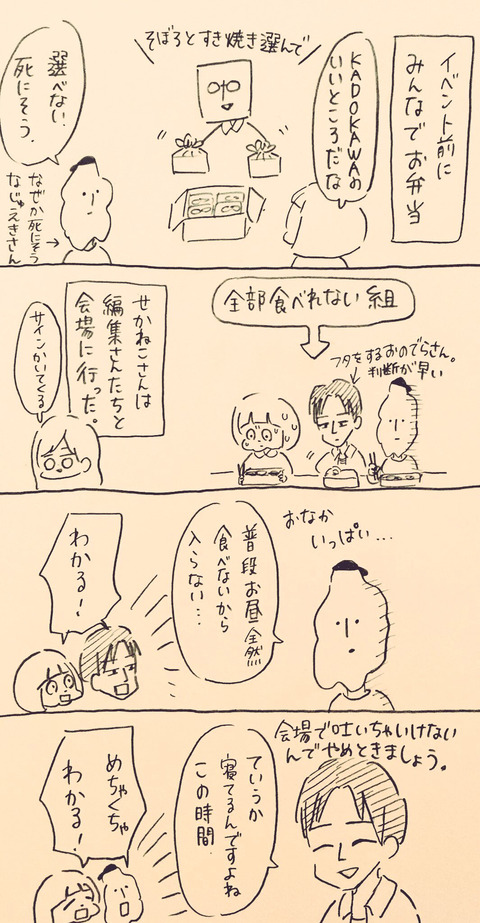 イベント前に
みんなでお弁当
KADOKAWAの
いいところだな
そぼろとすき焼き選んで
選べない。
死にそう。
なぜか死にそう
なじゅえきさん
全部食べれない組
フタをするおのでらさん。
判断が早い
せかねこさんは
編集さんたちと
会場に行った。
サインかいてくる
おなか
いっぱい…
普段お昼全然
食べないから
入らない…
わかる!
会場で吐いちゃいけない
んでやめときましょう。
ていうか
寝てるんですよね
この時間
めちゃくちゃ
わかる!